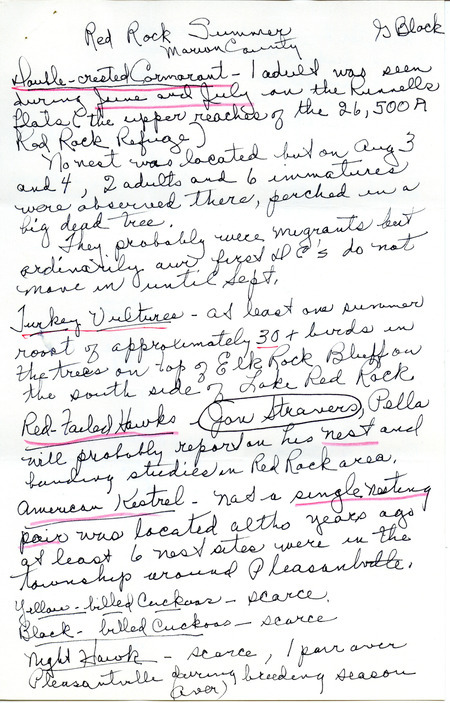 Red Rock Summer G Black
Marion County
Double-crested Cormorant - 1 adult was seen
during June and July on the Runnells
flats (the upper reaches of the 26,500 A
Red Rock Refuge)
No nest was located but on Aug 3
and 4, 2 adults and 6 immatures
were observed there, perched in a
big dead tree.
They probably were migrants but
ordinarily our first D C's do not
move in until Sept.
Turkey Vultures - at least one summer
roost of approximately 30+ birds in
the trees on top of Elk Rock Bluff on
the south side of Lake Red Rock
Red-Tailed Hawks - Jon Stravers, Pella
will probably report on his nest and
banding studies in Red Rock area.
American Kestrel - not a single nesting
pair was located altho years ago
at least 6 nest sites were in the
township around Pleasantville.
Yellow-billed Cuckoos - scarce.
Black-billed Cuckoos - scarce
Night Hawk - scarce, 1 pair over
Pleasantville during breeding season
(over)